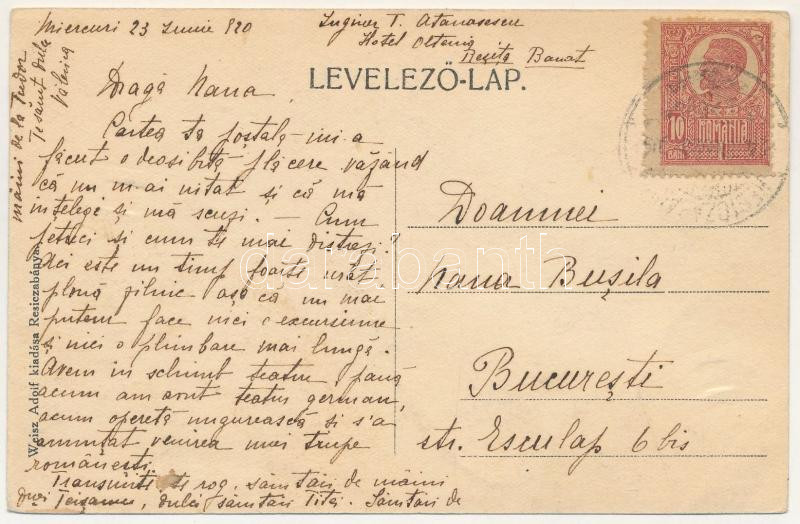 Miercuri 23 Iunie 920
Inginer T. Atanasescu
Hotel Oltenia
Reșița Banat
LEVELEZŐ-LAP.
Dragă Nana,
Cartea ta poștală mi-a
făcut o deosibită plăcere văzând
că nu m-ai uitat și că mă
înțelegi și mă scuzi. — Cum
petreci și cum te mai distrezi?
Aci este un timp foarte urât.
plouă zilnic așa că nu mai
putem face nici o excursiune
și nici o plimbare mai lungă.
Avem în schimb teatru până
acum am avut teatru german,
acum operetă ungurească și s'a
anunțat venirea unei trupe
românești.
Transmite te rog, sărutări de mâini
Dnei, dulci sărutări Titei. Sărutări de
mâini de la Tudor
Valerica
Doamnei
Nana Bușila
București
str. Esculap 6 bis
Weisz Adolf kiadása Resiczabánya.
10
ROMANIA
BANI
darabanth